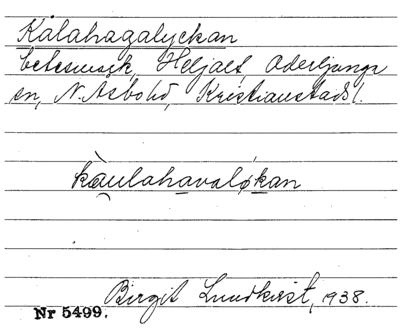 Kålahagalyckan
betesmark, Heljalt, Oderljunga
sn, N. Åsbo hd, Kristianstads l.
kåulahavaløkan
Birgit Lundkvist, 1938.
Nr 5499.